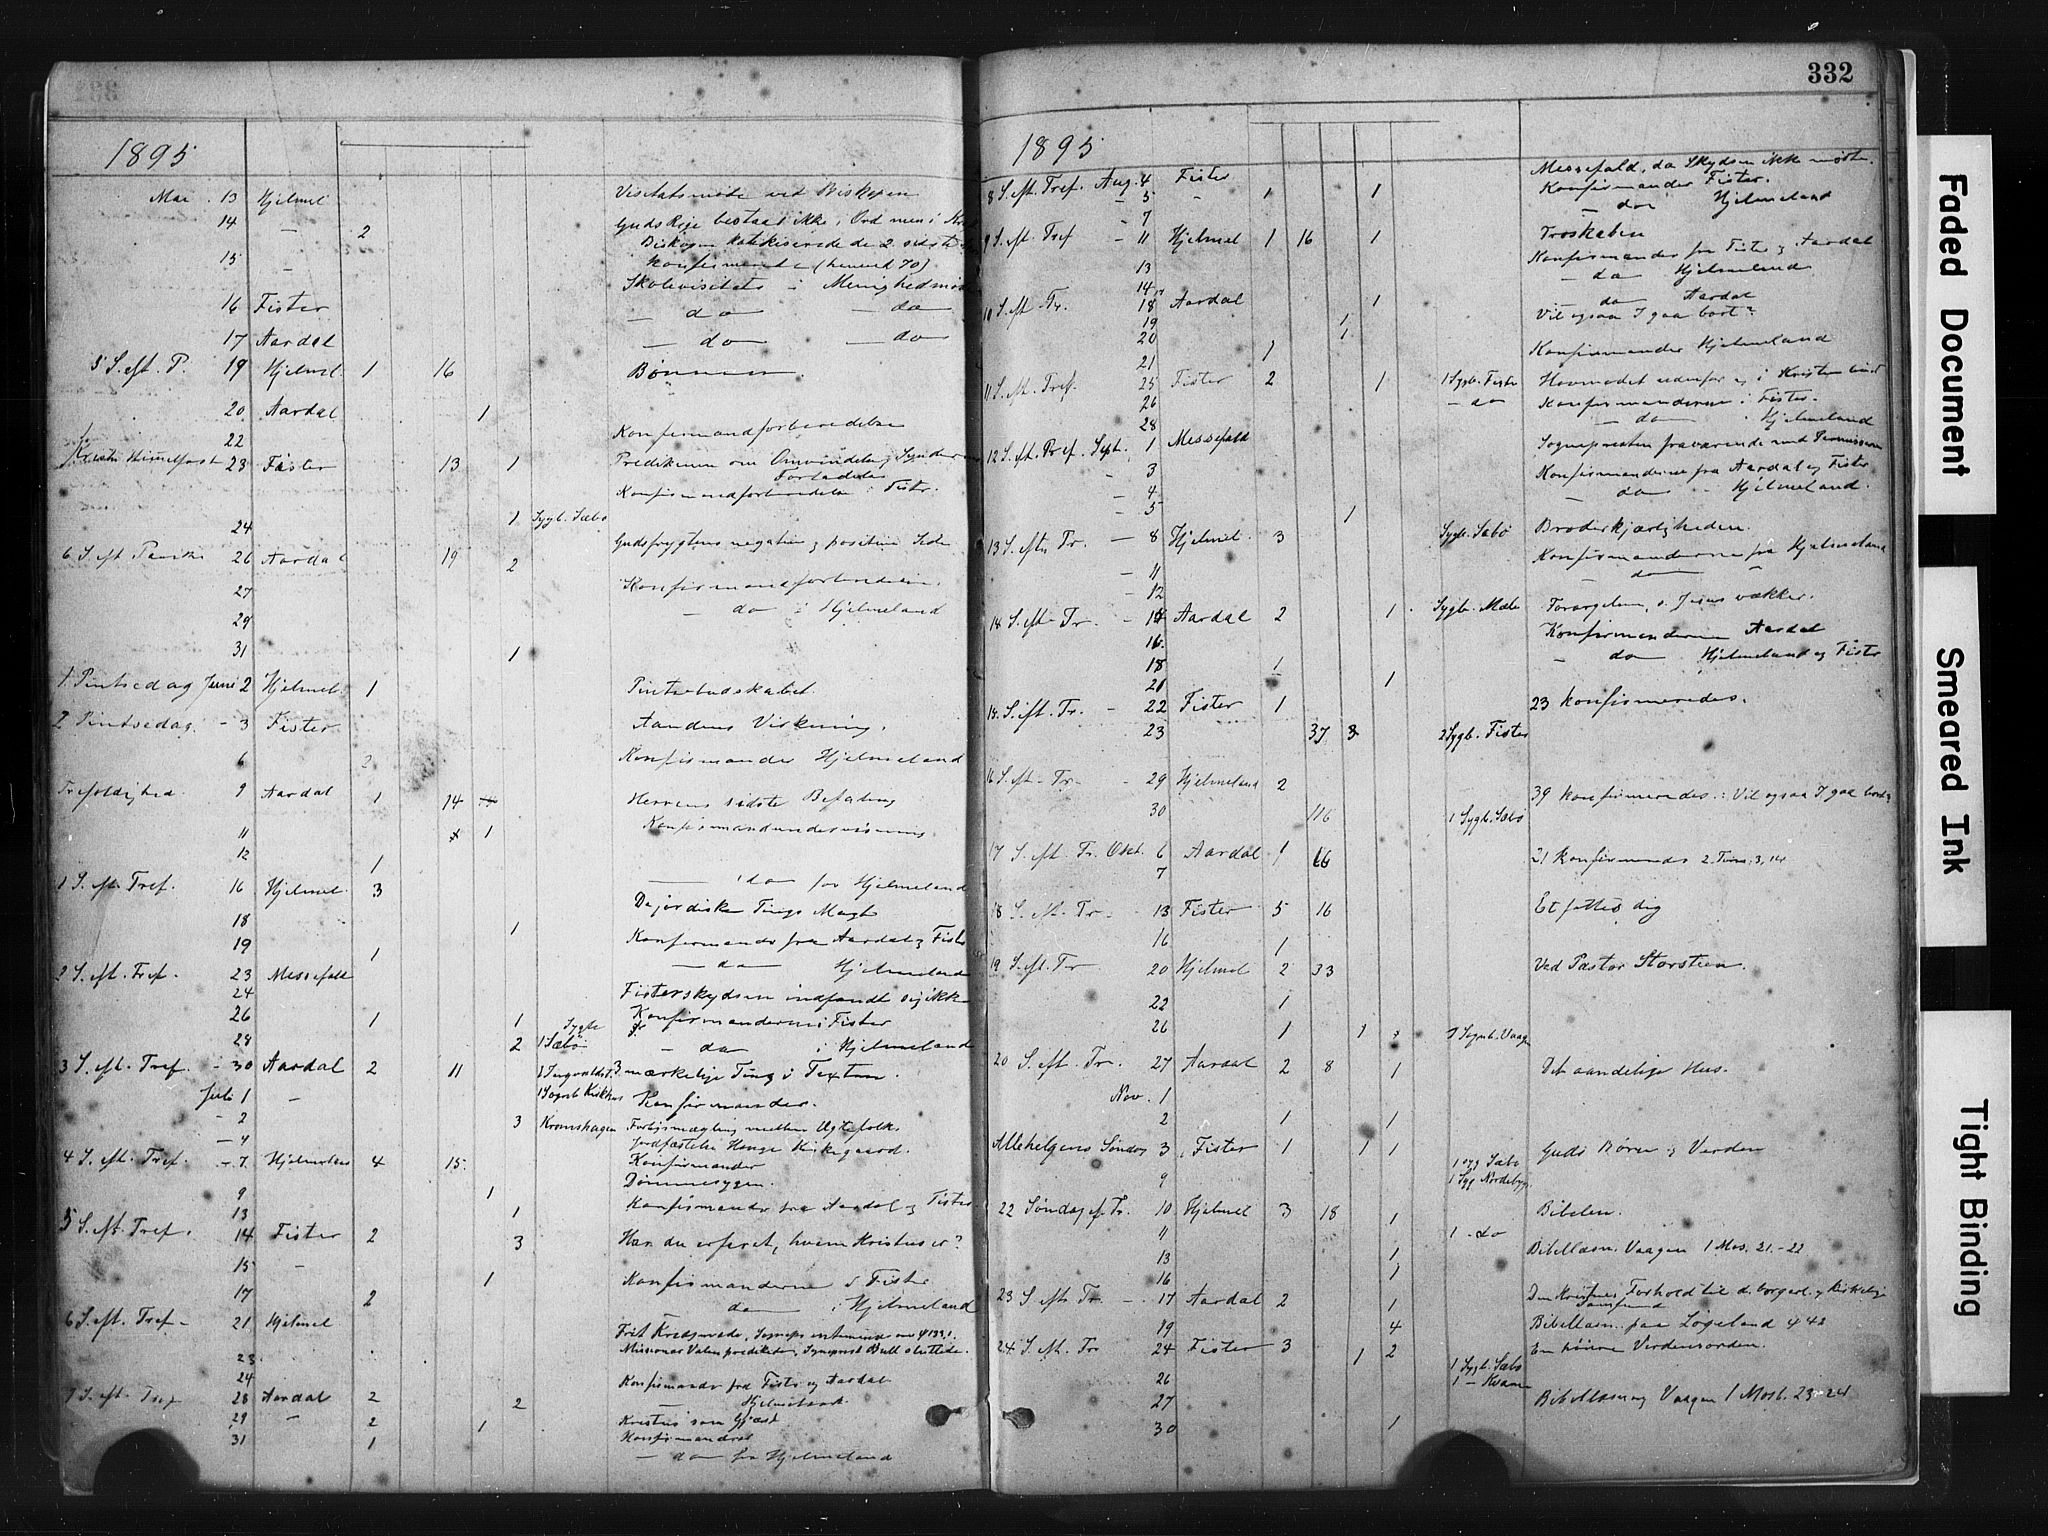 1895
Mai 13 Hjelmel Visitatsmøde ved Biskopen
14 — 2 Guds Rige bestaar ikke i Ord men i
Biskopen katekiserede de 2 sidste
15 — konfirmerede (henved 70)
Skolevisitats i Menighedsmøde
16 Fister — do — do
17 Aardal — do — do
5 S. eft. P. 19 Hjelmel. 1 16 Bønnen.
20 Aardal 1
22 Konfirmandforberedelse
Kristi Himmelfart 23 Fister 13 1 Prædikenen om Omvendelse, Syndernes
Forladelse
Konfirmandforberedelse i Fister.
24 1 Sygb. Sæbø
6 S. eft Paaske 26 Aardal 19 2 Gudsfrygtens negative og positive Side
27 Konfirmandforberedelse.
29 — do i Hjelmeland
31 1
1 Pintsedag Juni 2 Hjelmel. 1 Pintsebudskabet.
2 Pintsedag. – 3 Fister Aandens Virkning.
6 2 Konfirmander Hjelmeland
Trefoldighed 9 Aardal 1 14 Herrens sidste Befaling
11 1 Konfirmandundervisning
12 1
1 S. eft. Tref. 16 Hjelmel. 3 — do for Hjelmeland
18 1 De jordiske Tings Magt
19 1 Konfirmander fra Aardal og Fister
2 S. eft. Tref. 23 Messefald — do Hjelmeland
24 Fisterskydsen indfandt sig ikke
26 1 1 Konfirmanderne i Fister
28 2 1 Sygb. Sæbø — do i Hjelmeland
3 S. eft. Tref. – 30 Aardal 2 11 3 mærkelige Ting i Texten.
Juli 1 — Konfirmander.
– 2 3 Kromshagen Forligsmægling mellem Ægtefolk.
– 4 Jordfæstelse Hauge Kirkegaard.
4 S. eft. Tref. – 7. Hjelmeland 4 15. Konfirmander
Dømmesygen.
9 1
13 1 Konfirmander fra Aardal og Fister
5 S. eft. Tref. 14 Fister 2 3 Har du erfaret, hvem Kristus er?
15 — 1 Konfirmanderne i Fister
17 2 — do — i Hjelmeland
6 S. eft. Tref – 21 Hjelmel Frit Kredsmøde,
Missionær Valen prædikede, Sogneprest Bull sluttede.
23
24 Konfirmander fra Fister og Aardal
7 S. eft. Tref 28 Aardal 2 2 — Hjelmeland
29 " 2 1 Kristus som Gjæst
31 1 Konfirmander
— do fra Hjelmeland
332
1895
8 S. eft. Tref. Aug. 4 Fister Messefald, da Skydsen ikke mødte.
– 5 – 1 1 Konfirmander Fister.
– 7 — do Hjelmeland
9 S. eft. Tref – 11 Hjelmel 1 16 1 Troskaben
13 Konfirmander fra Fister og Aardal
14 — da Hjelmeland
10 S. eft. Tr. 18 Aardal 1 — da Aardal
19 1 Vil ogsaa I gaa bort?
20 1
21 1 Konfirmander Hjelmeland
11 S. eft. Tref. 25 Fister 2 1 1 Sygb. Fister Hovmodet udenfor og i Kristen
26 — do Konfirmanderne i Fister.
28 — do — i Hjelmeland
12 S. eft. Tref. Sept. 1 Messefald Sognepresten fraværende med Permission
– 3 Konfirmanderne fra Aardal og Fister
– 4 — do — Hjelmeland.
– 5 1
13 S. efter Tr. – 8 Hjelmel. 3 Sygb. Sæbø Broderkjærligheden.
– 11 Konfirmanderne fra Hjelmeland
– 12 — do —
14 S. eft. Tr. – 15 Aardal 2 1 Sygb. Mæle Forargelsen, s. Jesus vækker.
16 Konfirmanderne Aardal
18 1 — do Hjelmeland og Fister
21 1
15. S. eft. Tr. – 22 Fister 1 23 konfirmeredes.
23 37 3 2 Sygb. Fister
16 S. eft. Tr. – 29 Hjelmeland 2 39 konfirmeredes: Vil ogsaa I gaa bort
30 116 1 Sygb. Sæbø
17 S. eft. Tr. Okt. 6 Aardal 1 66 21 konfirmeredes 2. Tim. 3, 14
7
18 S. eft. Tr. – 13 Fister 5 16 Et fattes dig
16 1
19 S. eft. Tr 20 Hjelmel 2 33 Ved Pastor Storsteen.
22 1
26 1 1 Vaage
20 S. eft. Tr. 27 Aardal 2 8 1 Det aandelige Hus.
Nov. 1
2 1 1
Allehelgens Søndag 3 Fister 1 1 1 1 syg Sæbø Guds Børn og Verden
9 1 Syg Nordebyg.
22 Søndag ef. Tr. 10 Hjelmel 3 18 1 Bibelen.
11 1 – do
13 1 Bibellæsn. Vaagen 1 Mos. 21.–22
16 1
23 S. eft. Tr. – 17 Aardal 2 1 Den Kristnes Forhold til d. borgerl. og kirkelige
Samfund
19 4 Bibellæsn. paa Løgeland ψ 42
24 S. eft. Tr 24 Fister 3 1 2 En høiere Verdensorden.
1 Sygb. Sæbø
26 1 – Kvam
27 Bibellæsning Vaagen 1 Mosb. 23–24
30 1
Faded Document
Smeared Ink
Tight Binding